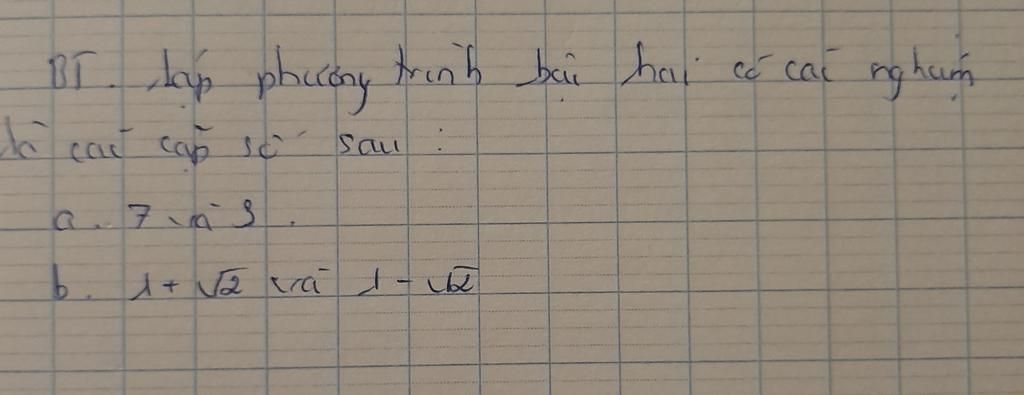 BT. Lập phương trình bậc hai có các nghiệm
là các cặp số sau :
a. 7 và 3.
b. 1 + √2 và 1 - √2